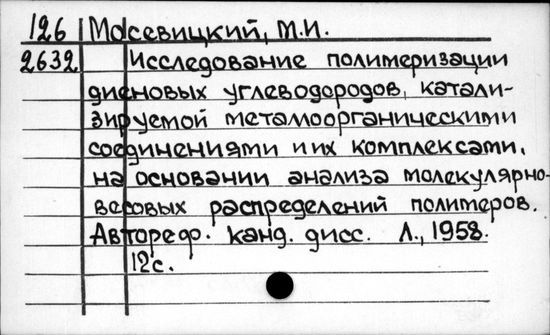 126 Мосевицкий, М.И.
2632 Исследование полимеризации
диеновых углеводородов, катали-
зируемой металоорганическими
соединениями и их комплексами,
на основании анализа молекулярно-
весовых распределений полимеров.
Автореф. канд. дисс. Л., 1958.
12с.